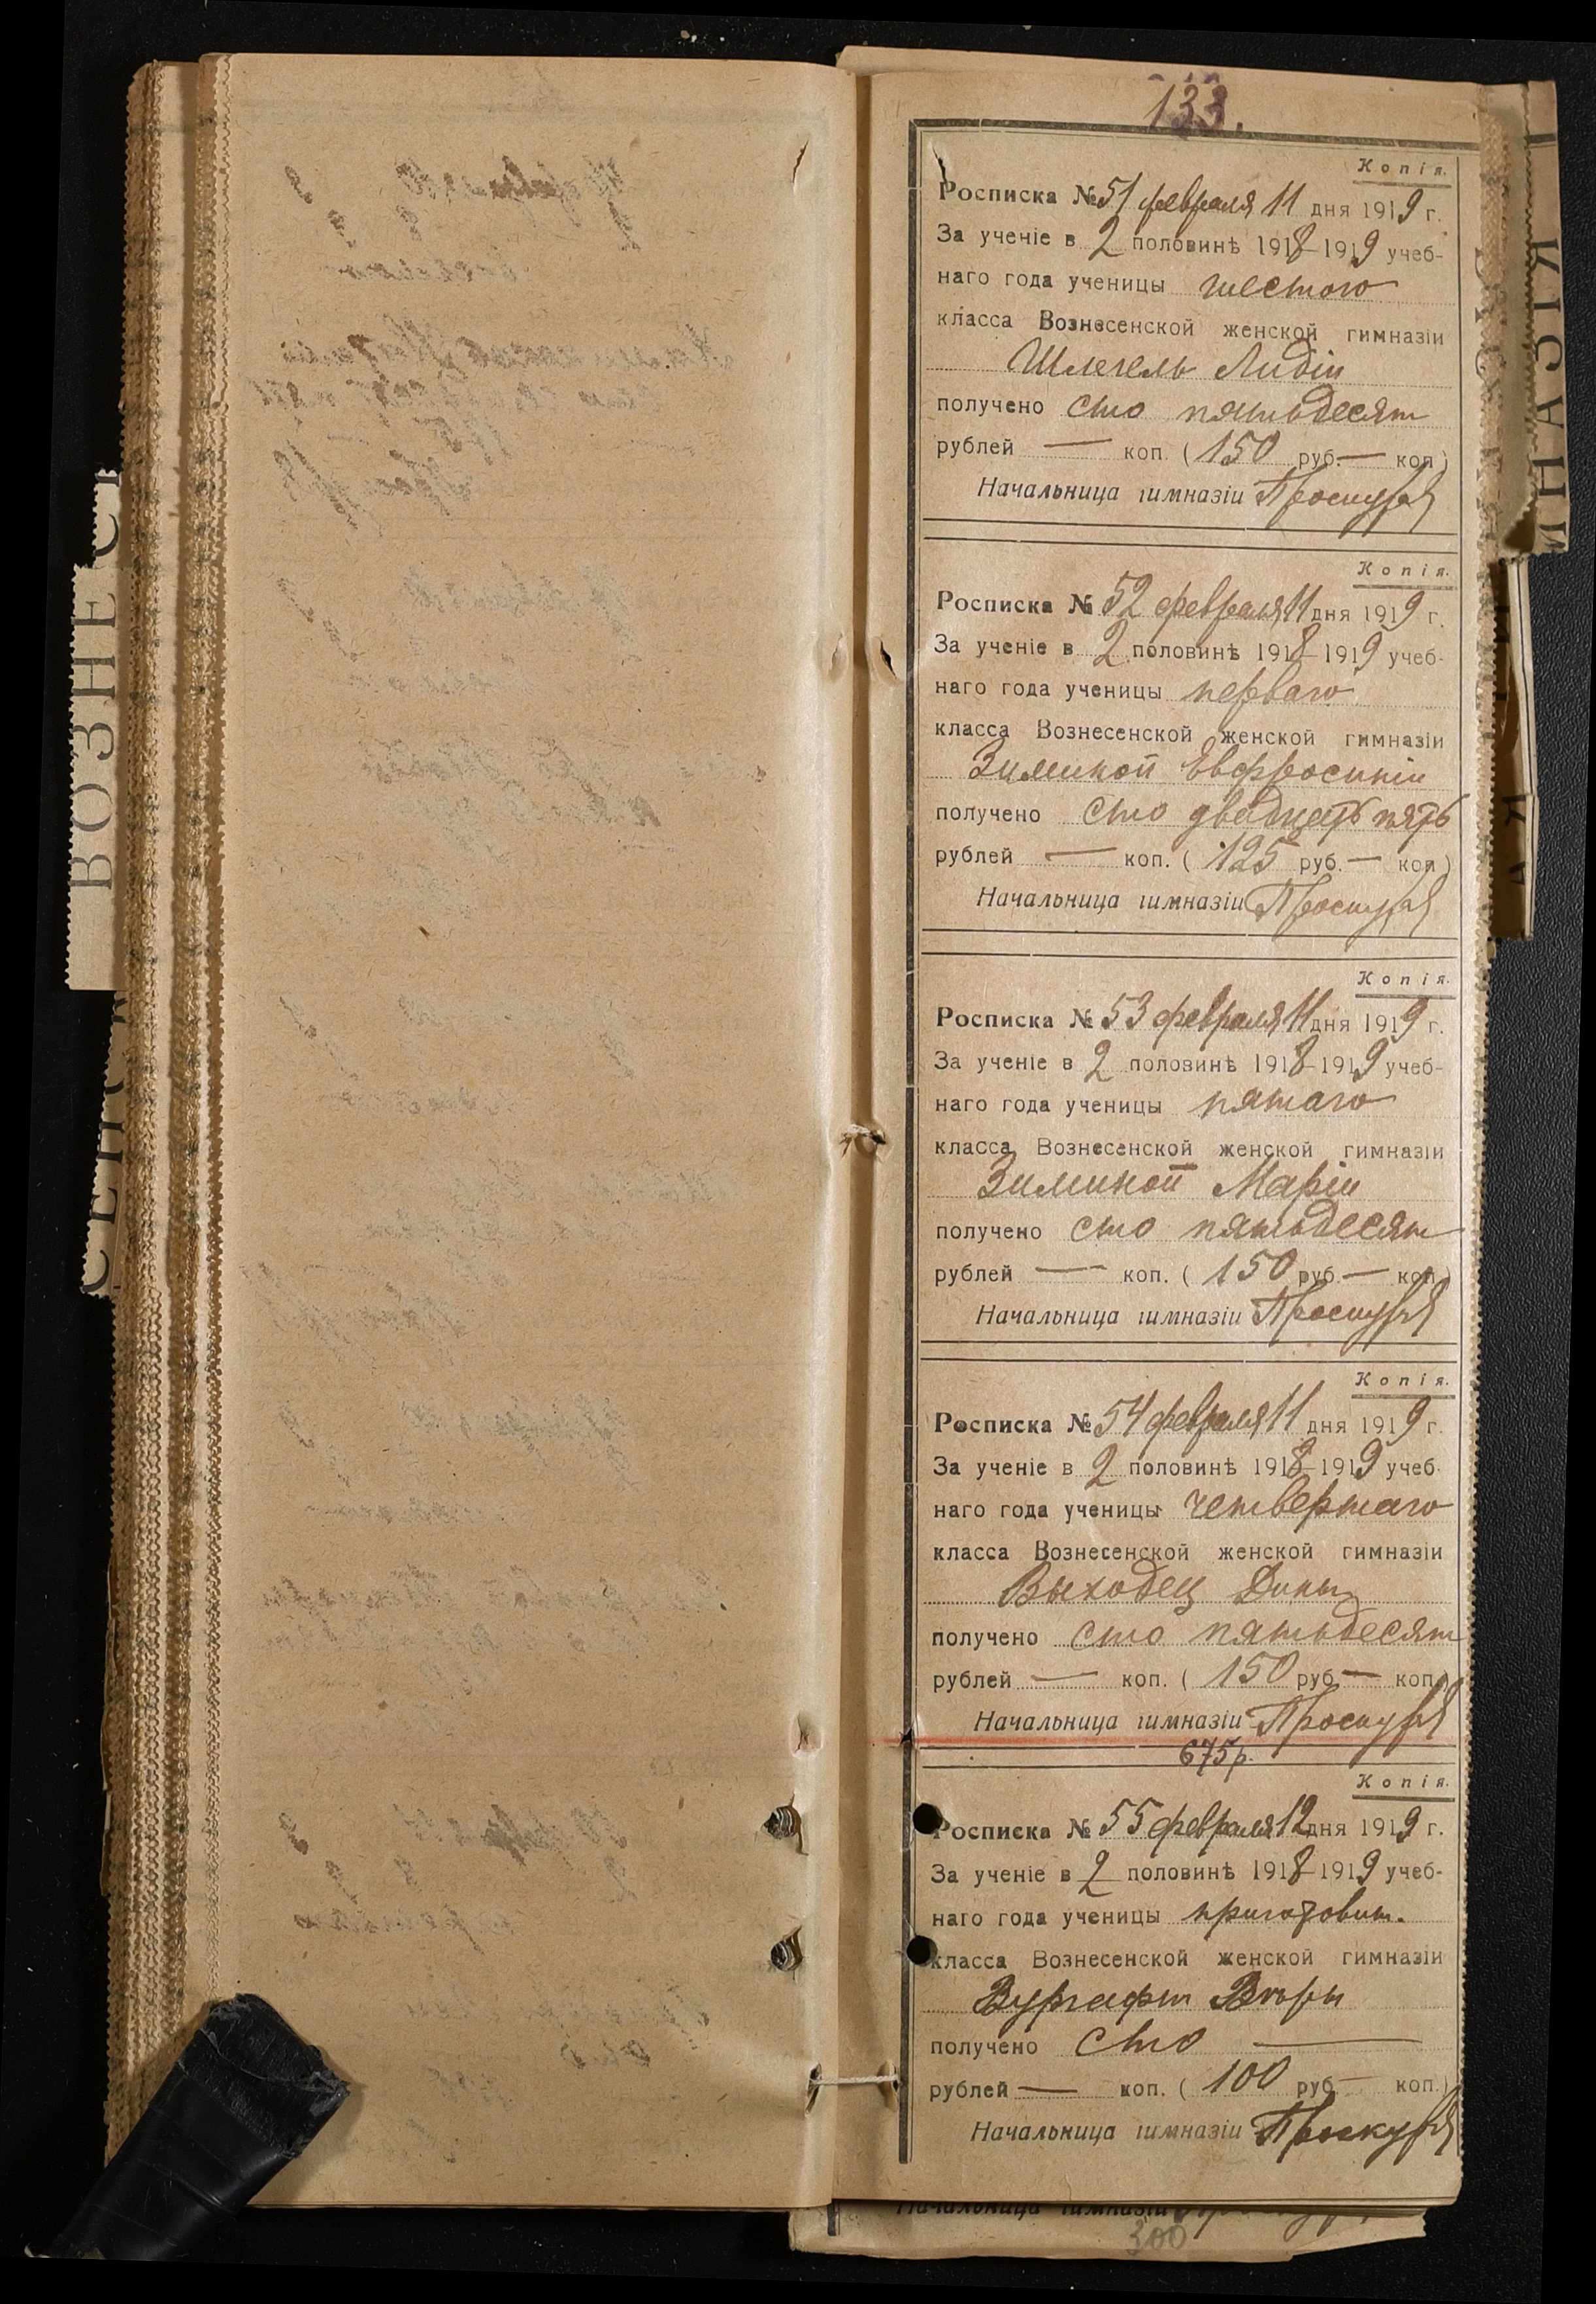 133.
Копія.
Росписка № 51 февраля 11 дня 1919 г.
За ученіе в 2 половинѣ 1918-1919 учеб-
наго года ученицы шестого
класса Вознесенской женской гимназіи
Шлегель Лидіи
получено сто пятьдесят
рублей — коп. (150 руб. — коп.)
Начальница гимназіи
Копія.
Росписка № 52 февраля 11 дня 1919 г.
За ученіе в 2 половинѣ 1918-1919 учеб-
наго года ученицы перваго
класса Вознесенской женской гимназіи
Зиминой Евфросиніи
получено сто двадцать пять
рублей — коп. (125 руб. — коп.)
Начальница гимназіи
Копія.
Росписка № 53 февраля 11 дня 1919 г.
За ученіе в 2 половинѣ 1918-1919 учеб-
наго года ученицы пятаго
класса Вознесенской женской гимназіи
Зиминой Маріи
получено сто пятьдесят
рублей — коп. (150 руб. — коп.)
Начальница гимназіи
Копія.
Росписка № 54 февраля 11 дня 1919 г.
За ученіе в 2 половинѣ 1918-1919 учеб-
наго года ученицы четвертаго
класса Вознесенской женской гимназіи
Выходец Дины
получено сто пятьдесят
рублей — коп. (150 руб. — коп.)
Начальница гимназіи
675 р.
Копія.
Росписка № 55 февраля 12 дня 1919 г.
За ученіе в 2 половинѣ 1918-1919 учеб-
наго года ученицы приготовит.
класса Вознесенской женской гимназіи
Вургафт Вѣры
получено сто —
рублей — коп. (100 руб. — коп.)
Начальница гимназіи
Начальница гимназіи
300
ВОЗНЕС